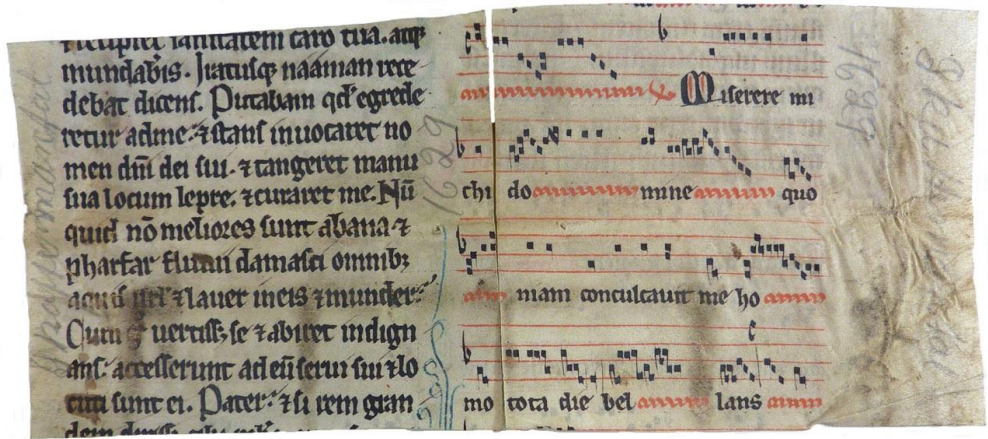 recipiet sanitatem caro tua. atqȝ
mundab̄is. Iratusqȝ naaman rece
debat dicens. Putabam qd̄ egrede
retur adme. ⁊ stans inuocaret no
men dn̄i dei sui. ⁊ tangeret manu
sua locum lepre. ⁊ curaret me. Nū
quid nō meliores sunt abana ⁊
pharfar fluuii damasci omnibȝ
⁊ lauer in eis ⁊ munder.
uertiss; se ⁊ abiret indign
ans. accesserunt ad eū serui sui ⁊ lo
cuti sunt ei. Pater. ⁊ si rem gran
Miserere mi
chi do mine quo
mam conculcauit me ho
mo tota die bel lans
1629
1629